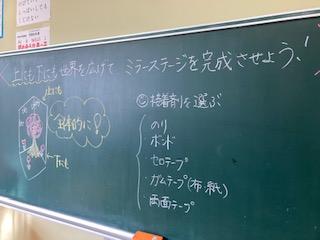 上にも下にも世界を広げて ミラーステージを完成させよう!
上にも
下にも
© 接着剤を選ぶ
のり
ボンド
セロテープ
ガムテープ(布・紙)
両面テープ